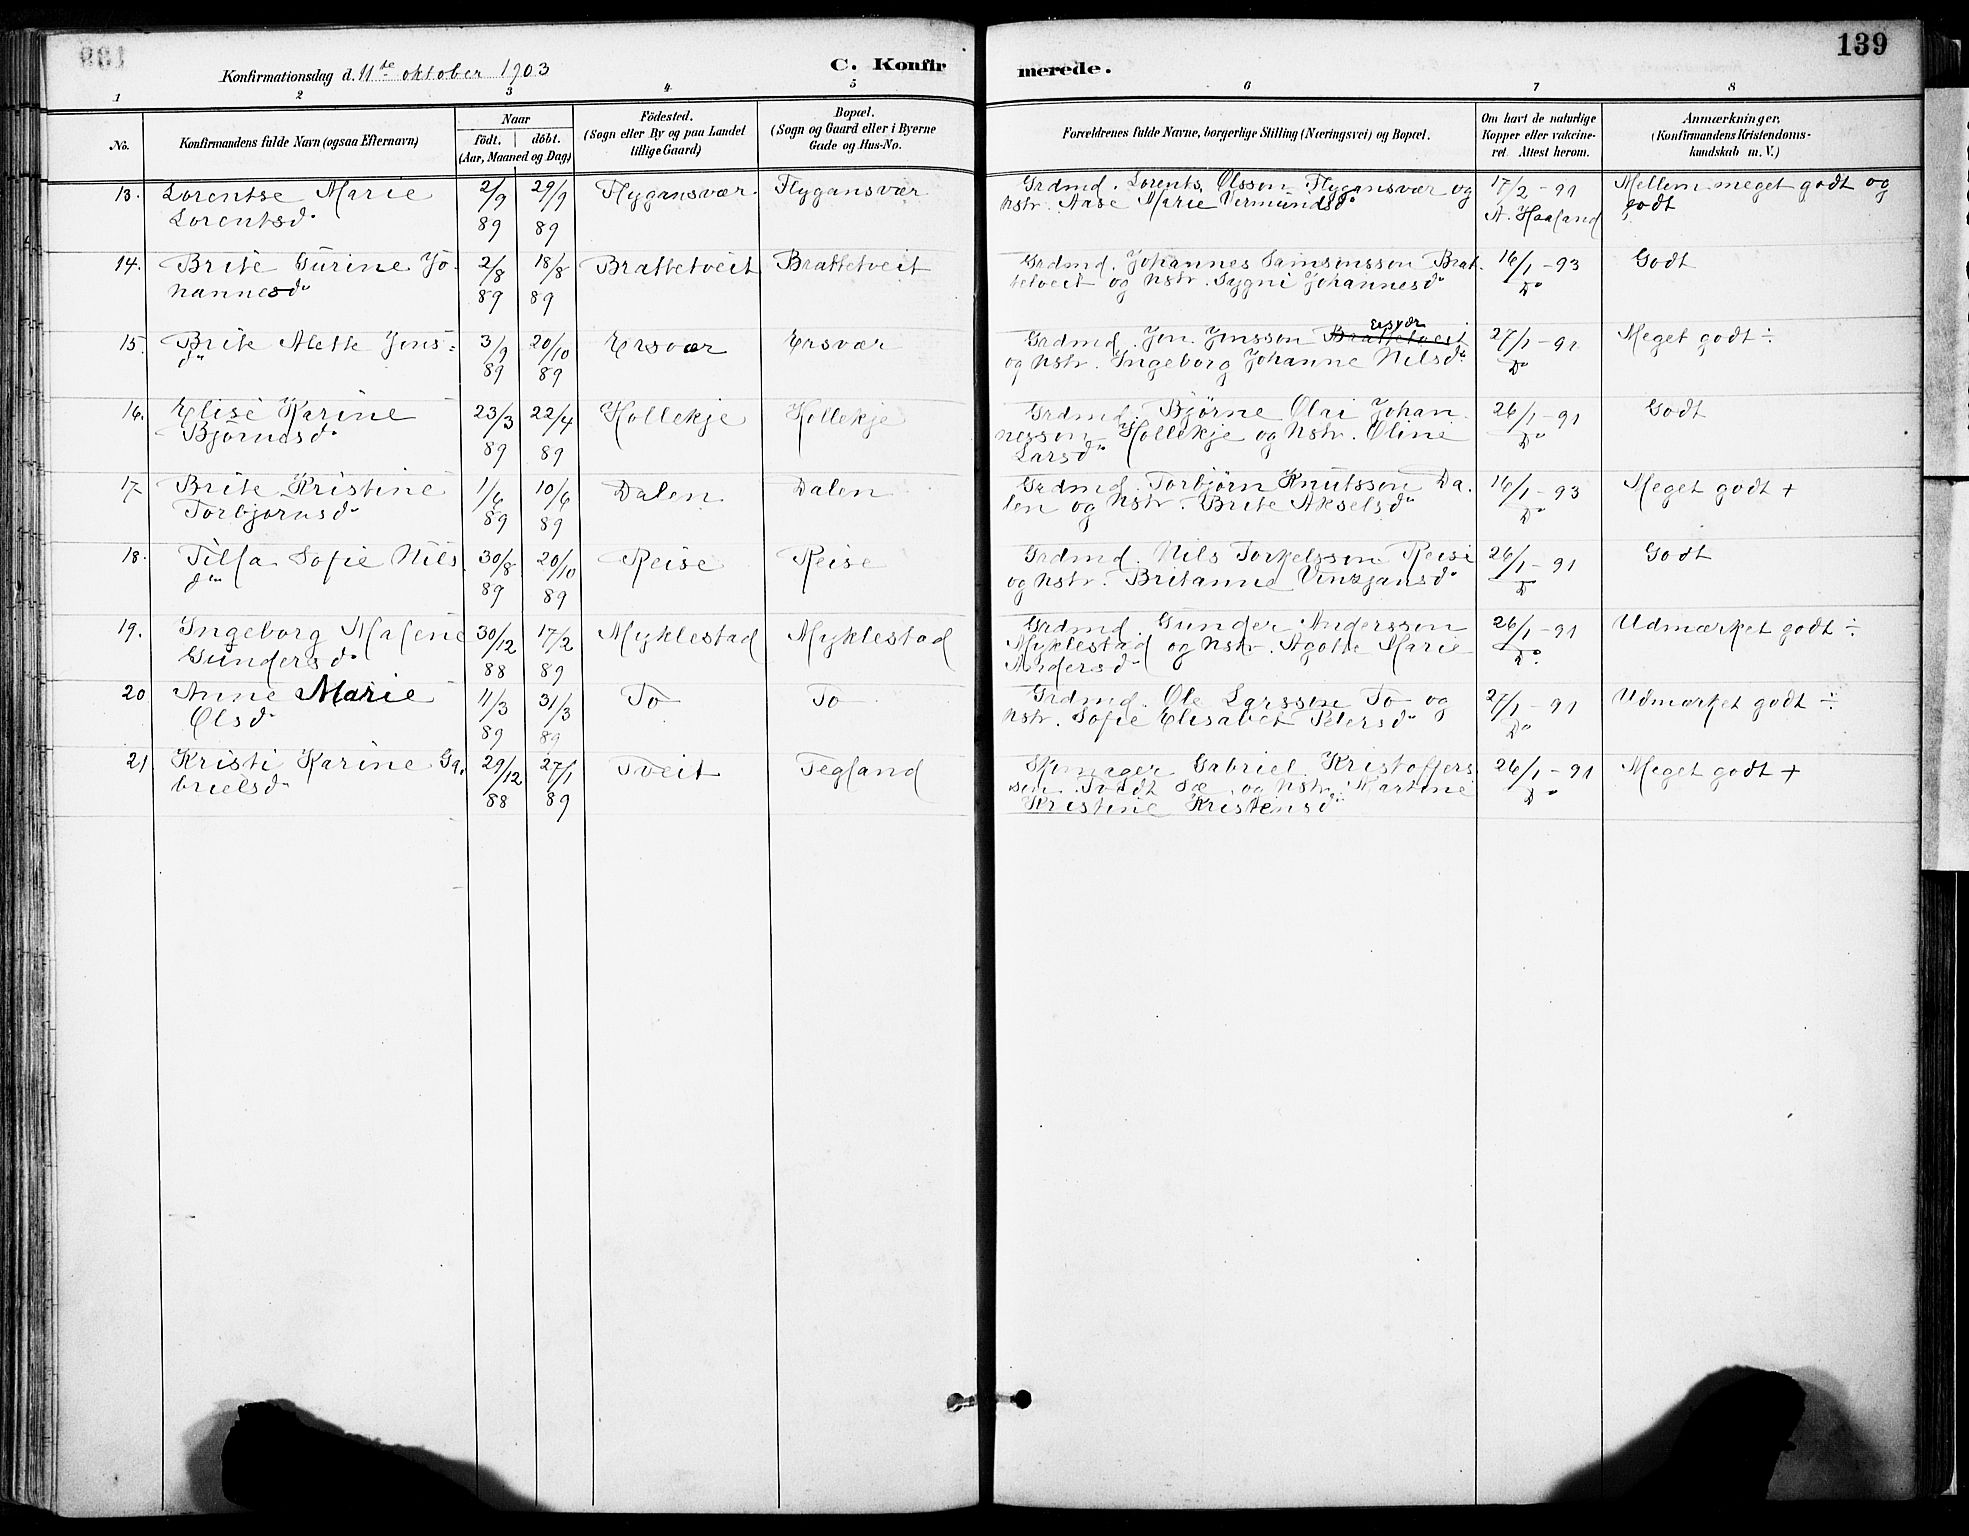 139
Konfirmationsdag d. 11te oktober 1903
C. Konfir
merede.
1 2 3 4 5 6 7 8
No.
Konfirmandens fulde Navn (ogsaa Efternavn)
Naar
født. døbt.
(Aar, Maaned og Dag)
Födested.
(Sogn eller By og paa Landet
tillige Gaard)
Bopæl.
(Sogn og Gaard eller i Byerne
Gade og Hus-No.
Forældrenes fulde Navne, borgerlige Stilling (Næringsvei) og Bopæl.
Om havt de naturlige
Kopper eller vakcine-
ret. Attest herom.
Anmærkninger,
(Konfirmandens Kristendoms-
kundskab m. V.)
13. Lorentse Marie 2/9 29/9 Flygansvær Flygansvær Grdmd. Lorents Olsson Flygansvær og 17/2 - 91 Mellem meget godt og
Lorentsd. 89 89 hstr. Aase Marie Vermundsd. A. Haaland godt
14. Brite Gurine Jo- 2/8 18/8 Brattetveit Brattetveit Grdmd. Johannes Samsonsson Brat- 16/1 - 93 Godt
hannesd. 89 89 tetveit og hstr. Sygni Johannesd. Do
15. Brite Alette Jons- 3/9 20/10 Ersvær Ersvær Grdmd. Jon Jonsson Brattetveit Ersvær 27/1 - 91 Meget godt ÷
d. 89 89 og hstr. Ingeborg Johanne Nilsd. Do
16. Elise Karine 23/3 22/4 Hollekje Hollekje Grdmd. Bjørne Olai Johan- 26/1 - 91 Godt
Bjørnesd. 89 89 nesson Hollekje og hstr. Oline Do
Larsd.
17. Brite Kristine 1/6 10/6 Dalen Dalen Grdmd. Torbjørn Knutsson Da- 16/1 - 93 Meget godt +
Torbjørnsd. 89 89 len og hstr. Brite Akselsd. Do
18. Tilla Sofie Nils 30/8 20/10 Reise Reise Grdmd. Nils Torkelsson Reise 26/1 - 91 Godt
d. 89 89 og hstr. Britanne Vinzjansd. Do
19. Ingeborg Malene 30/12 17/2 Myklestad Myklestad Grdmd. Gunder Andersson 26/1 - 91 Udmærket godt ÷
Gundersd. 88 89 Myklestad og hstr. Agotte Marie Do
Andersd.
20 Anne Marie 11/3 31/3 To To Grdmd. Ole Larsson To og 27/1 - 91 Udmærket godt ÷
Olsd. 89 89 hstr. Sofie Elisabet Petersd. Do
21 Kristi Karine Ga- 29/12 27/1 Tveit Tegland Skomager Gabriel Kristoffers- 26/1 - 91 Meget godt +
brielsd. 88 89 sen og hstr. Martine Do
Kristine Kristensd.